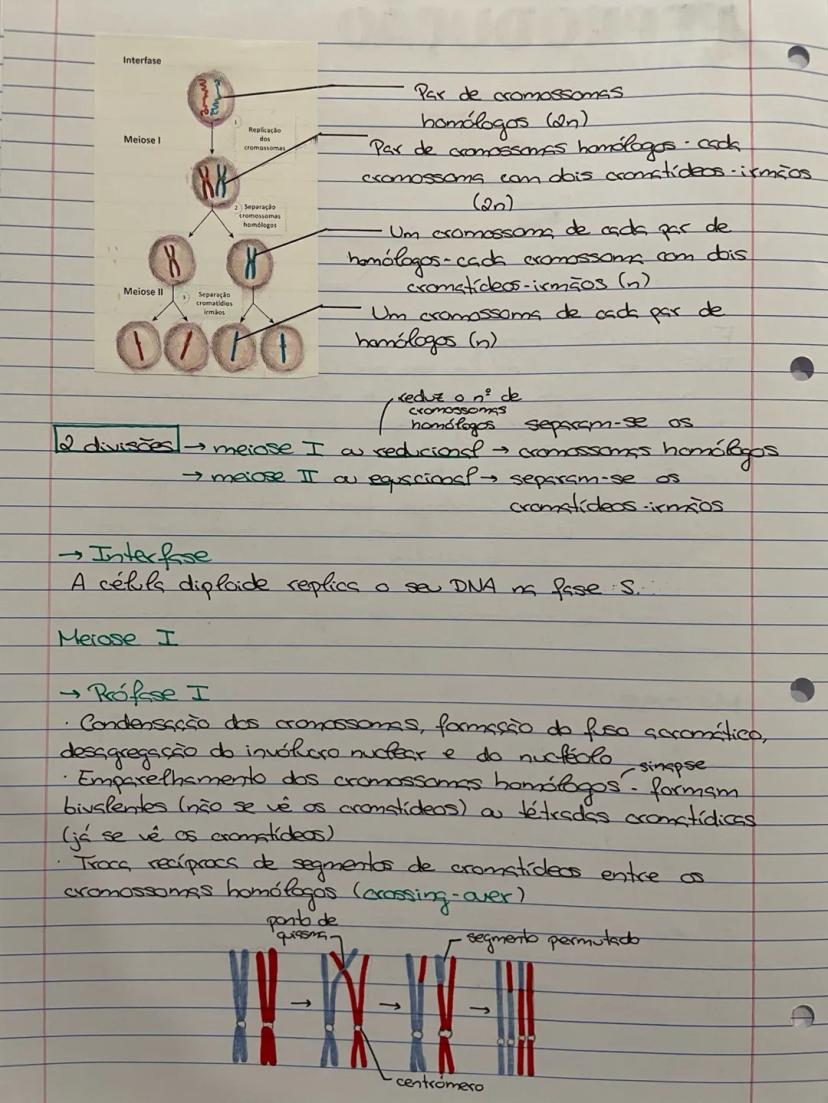 Interfase
Par de cromossomas
homólogos (2n)
1
Replicação
dos
cromossomas
Meiose I
Par de cromossomas homólogos - cada
cromossoma com dois cromatídeos-irmãos
(2n)
2 Separação
cromossomas
homólogos
Um cromossoma de cada par de
homólogos - cada cromossoma com dois
cromatídeos-irmãos (n)
Meiose II
3 Separação
cromatídios
irmãos
Um cromossoma de cada par de
homólogos (n)
reduz o nº de
cromossomas
homólogos
2 divisões → meiose I ou reducional → separam-se os
cromossomas homólogos
→ meiose II ou equacional → separam-se os
cromatídeos-irmãos
→ Interfase
A célula diploide replica o seu DNA na fase S.
Meiose I
→ Prófase I
· Condensação dos cromossomas, formação do fuso acromático,
desagregação do invólucro nuclear e do nucléolo
· Emparelhamento dos cromossomas homólogos - formam
sinapse
bivalentes (não se vê os cromatídeos) ou tétradas cromatídicas
(já se vê os cromatídeos)
· Troca recíproca de segmentos de cromatídeos entre os
cromossomas homólogos (crossing-over)
ponto de
quiasma
segmento permutado
centrómero